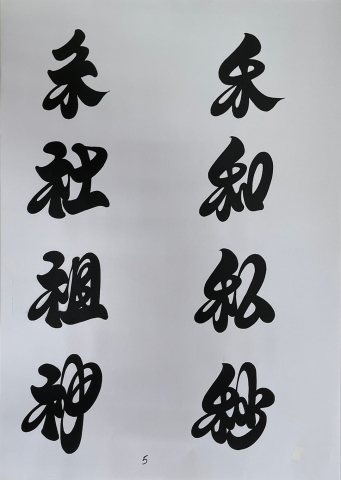 禾
和
私
秒
示
社
祖
神
5